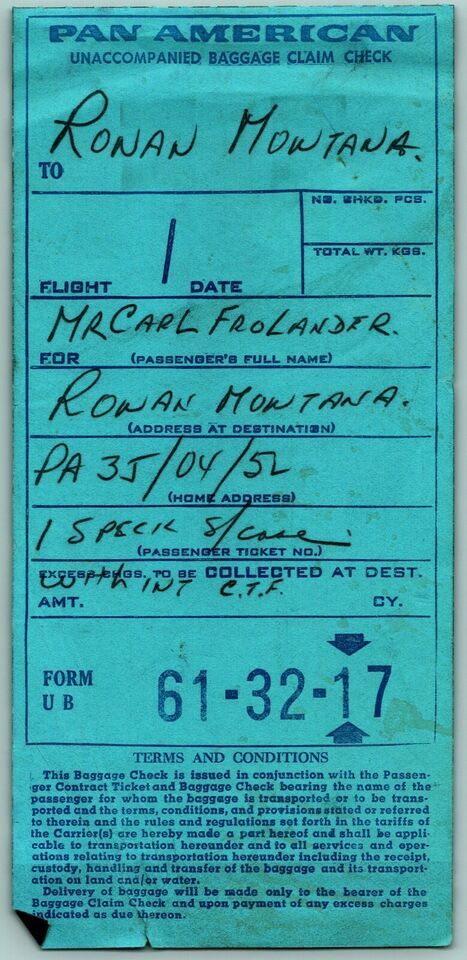 PAN AMERICAN
UNACCOMPANIED BAGGAGE CLAIM CHECK
RONAN MONTANA.
TO
NO. CHKD. PCS.
TOTAL WT. KGS.
FLIGHT / DATE
MR CARL FROLANDER.
FOR (PASSENGER'S FULL NAME)
RONAN MONTANA.
(ADDRESS AT DESTINATION)
PA 35/04/52
(HOME ADDRESS)
1 SPECK S/case
(PASSENGER TICKET NO.)
EXCESS CHGS. TO BE COLLECTED AT DEST.
WITH INT C.T.F.
AMT. CY.
FORM
U B
61-32-17
TERMS AND CONDITIONS
This Baggage Check is issued in conjunction with the Passen-
ger Contract Ticket and Baggage Check bearing the name of the
passenger for whom the baggage is transported or to be trans-
ported and the terms, conditions, and provisions stated or referred
to therein and the rules and regulations set forth in the tariffs of
the Carrier(s) are hereby made a part hereof and shall be appli-
cable to transportation hereunder and to all services and oper-
ations relating to transportation hereunder including the receipt,
custody, handling and transfer of the baggage and its transport-
ation on land and/or water.
Delivery of baggage will be made only to the bearer of the
Baggage Claim Check and upon payment of any excess charges
indicated as due thereon.